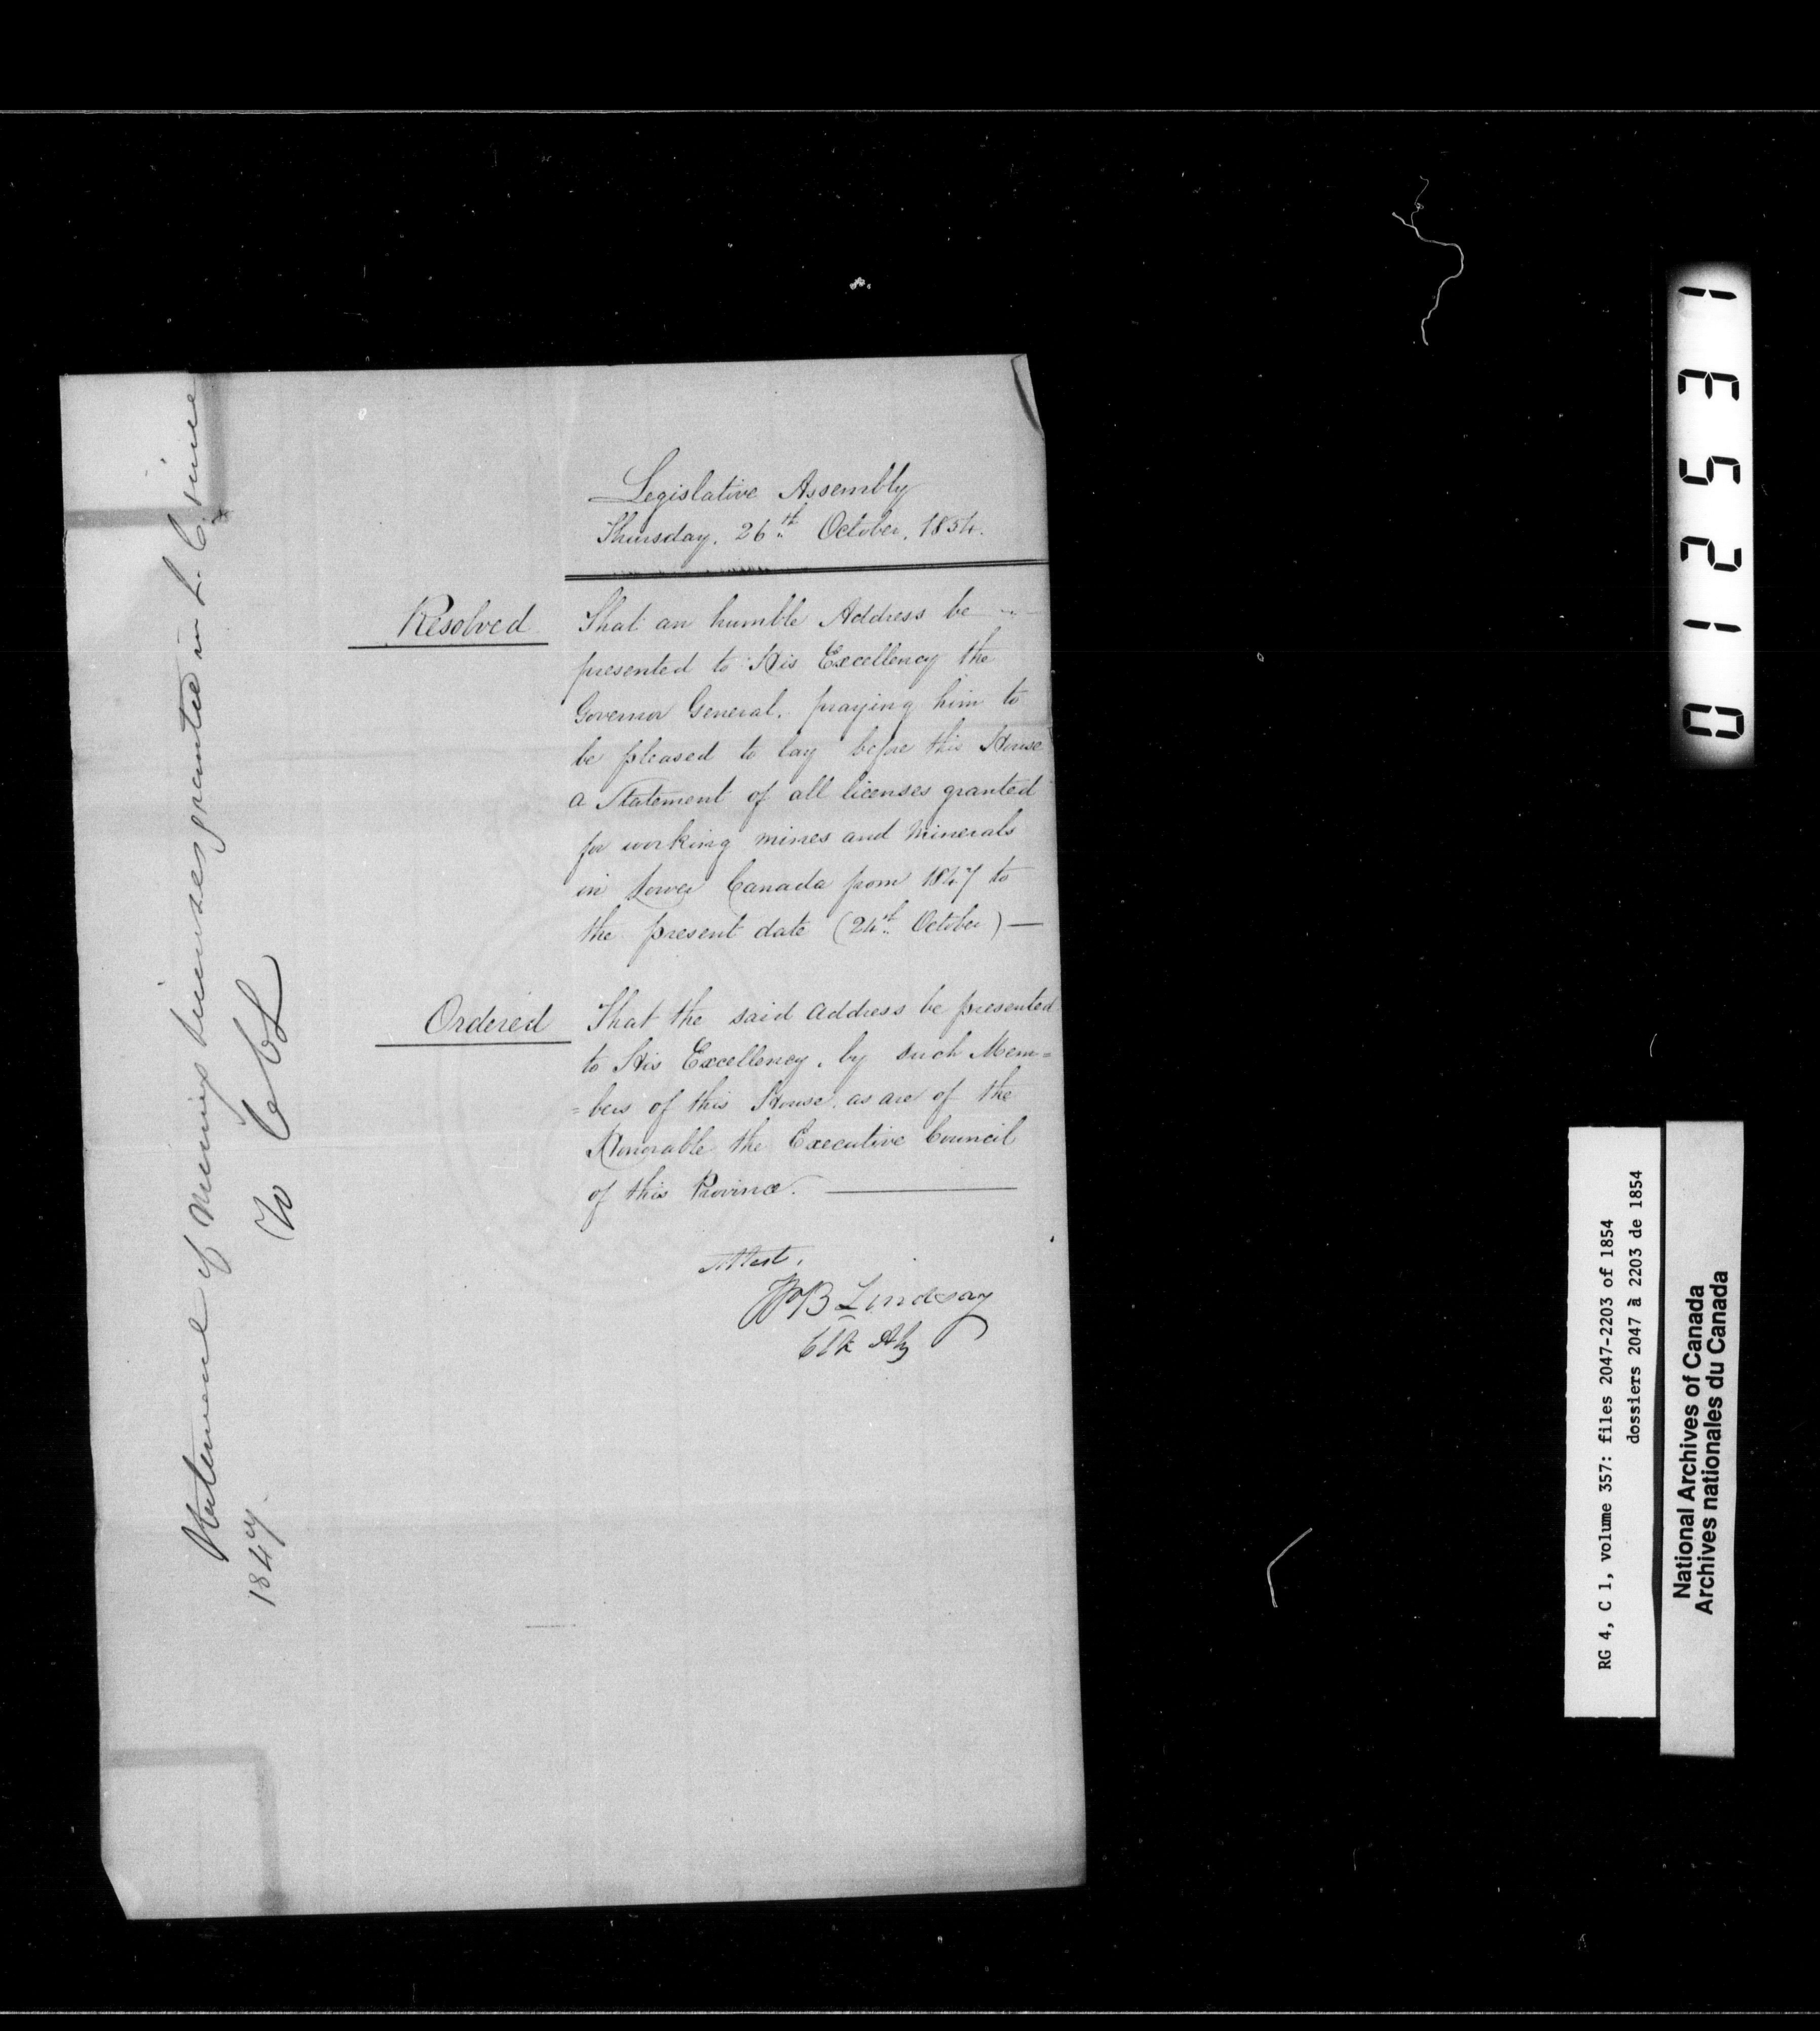 Legislative Assembly
Thursday, 26th October, 1854.
Resolved That an humble Address be
presented to His Excellency the
Governor General, praying him to
be pleased to lay before this House
a Statement of all licenses granted
for working mines and minerals
in Lower Canada from 1847 to
the present date (24th October) —
Ordered That the said Address be presented
to His Excellency, by such Mem=
=bers of this House, as are of the
Honorable the Executive Council
of this Province. —
Attest,
WB Lindsay
Clk Aly
Statement of Mining Licenses granted in L. C. since
1847.
CCL
012531
RG 4, C 1, volume 357: files 2047-2203 of 1854
dossiers 2047 à 2203 de 1854
National Archives of Canada
Archives nationales du Canada